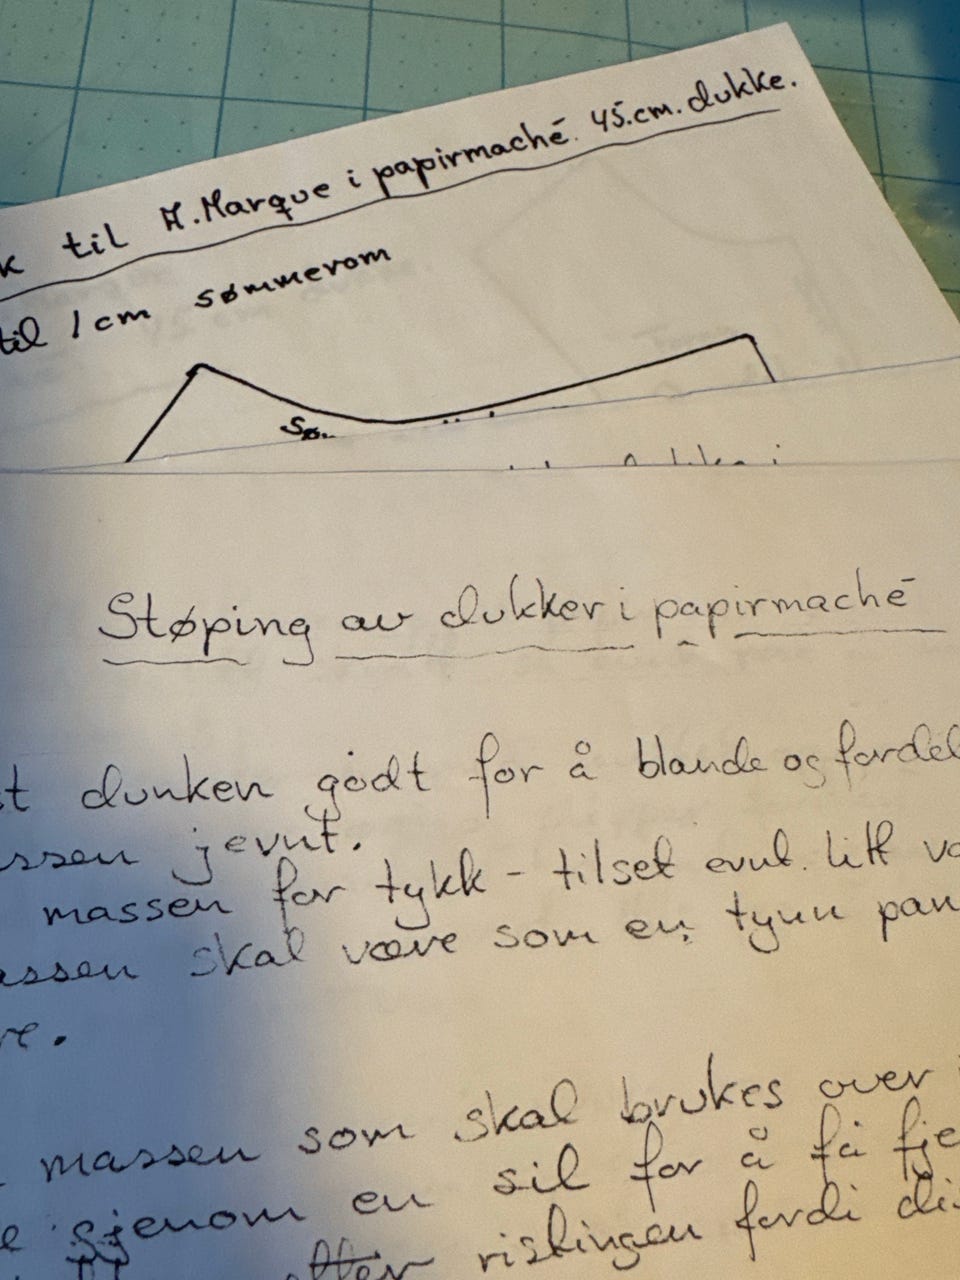 k til A. Marque i papirmaché. 45.cm. dukke.
til 1 cm sømmerom
Sø..
Støping av dukker i papirmaché
st dunken godt for å blande og fordel
ssen jevnt.
massen for tykk - tilset evnt. litt va
assen skal være som en tynn pan
re.
massen som skal brukes over i
e gjenom en sil for å få fje
etter ristingen fordi dis